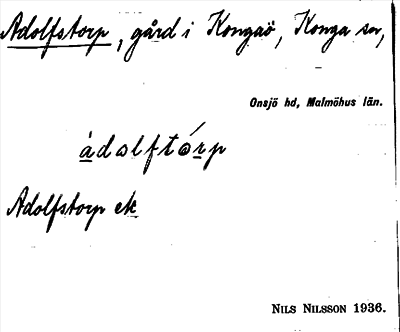 Adolfstorp, gård i Kongaö, Konga sn,
Onsjö hd, Malmöhus län.
àdolftårp
Adolfstorp ek
NILS NILSSON 1936.